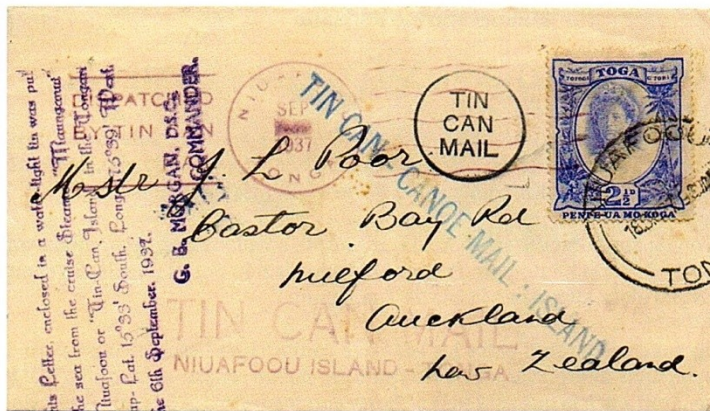 his Letter, enclosed in a water-tight tin was put
the sea from the cruise Steamer
Niuafoou or "Tin-Can Island" in the Tongan
Lat. 15°33' South. Long. 175°39' West.
the 6th September, 1937.
G. B. MORGAN, D.S.C.
COMMANDER.
BY TIN CAN
NIU
SEP
1937
TONGA
TIN CAN - CANOE MAIL : ISLAND
TIN
CAN
MAIL
TOGA
2½D
PENI-E-UA MO KOGA
NIUAFOOU
TON
Mastr J. L Poor
Castor Bay Rd
Milford
Auckland
New Zealand.
TIN CAN MAIL
NIUAFOOU ISLAND - TONGA